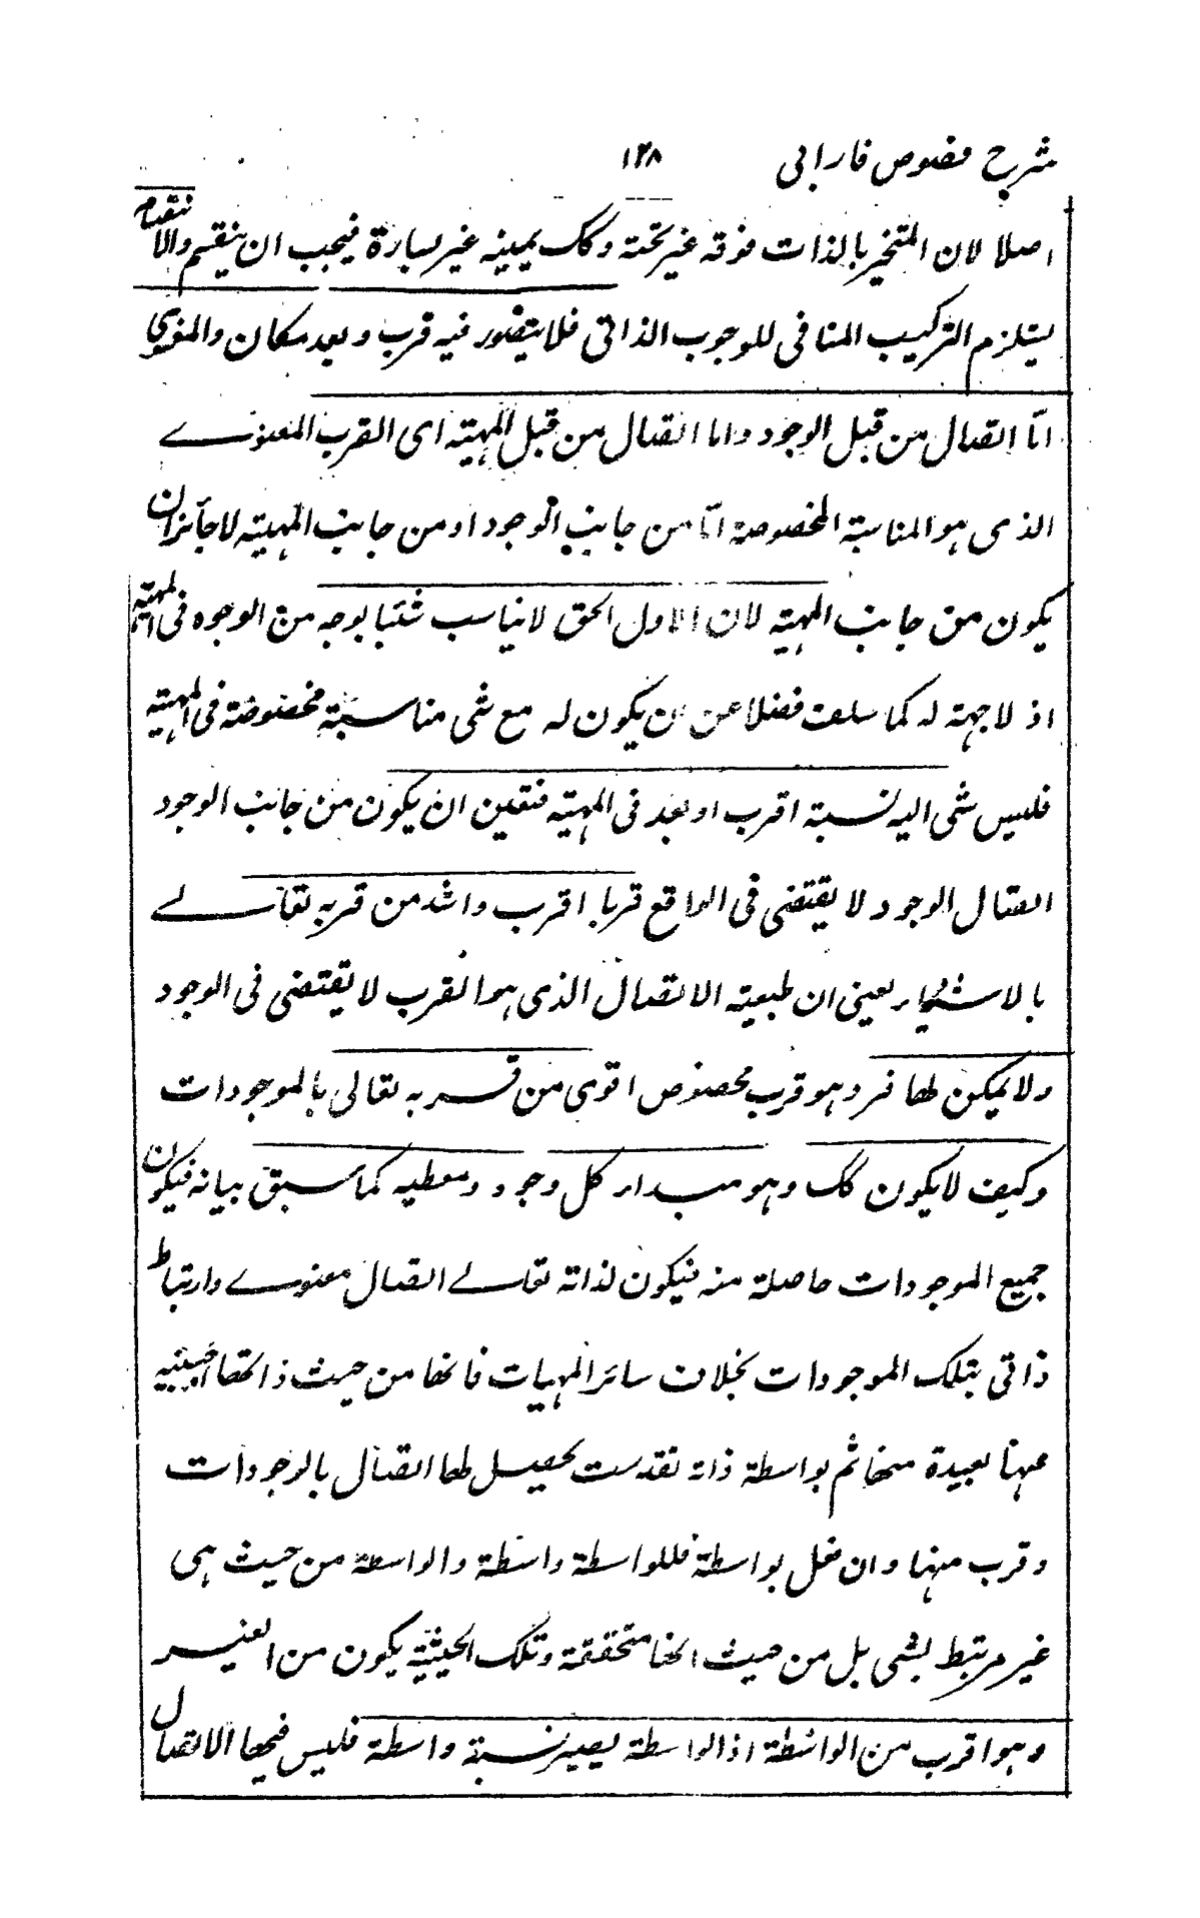 شرح فصوص فارابی ۱۲۸
اصلا لان المتحیز بالذات فوقه غیر تحته وکک یمینه غیر یساره فیجب ان ینقسم والانقسام
یستلزم الترکیب المنافی للوجوب الذاتی فلا یتصور فیه قرب وبعد مکان والمعنوی
امّا اتصال من قبل الوجود واما اتصال من قبل المهیته ای القرب المعنوے
الذی هو المناسبة المخصوصة امّا من جانب الوجود او من جانب المهیته لا جائز ان
یکون من جانب المهیته لان الاول الحق لا یناسب شئیا بوجه من الوجوه فی المهیته
اذ لا مهیته له کما سلف فضلا عن ان یکون له مع شی مناسبة مخصوصة فی المهیته
فلیس شی الیه نسبة اقرب او بعد فی المهیته فتعین ان یکون من جانب الوجود
اتصال الوجود لا یقتضی فی الواقع قربا اقرب واشد من قربه تعالے
بالاشیاء یعنی ان طبیعته الاتصال الذی هو القرب لا یقتضی فی الوجود
ولا یمکن لها فرد هو قرب مخصوص اقوی من قربه تعالی بالموجودات
وکیف لا یکون کک وهو مبداء کل وجود ومعطیه کما سبق بیانه فیکون
جمیع الموجودات حاصلة منه فیکون لذاته تعالے اتصال معنوے وارتباط
ذاتی بتلک الموجودات بخلاف سائر المهیات فانها من حیث ذاتها اجنبیه
عنها بعیدة منها ثم بواسطة ذاته تقدست یحصل لها اتصال بالوجودات
وقرب منها وان فعل بواسطة فللواسطة واسطة والواسطة من حیث هی
غیر مرتبط بشی بل من حیث انها متحققة وتلک الحیثیة یکون من الغیر
وهو اقرب من الواسطة اذ الواسطة یصیر نسبة واسطة فلیس فیها الاتصال